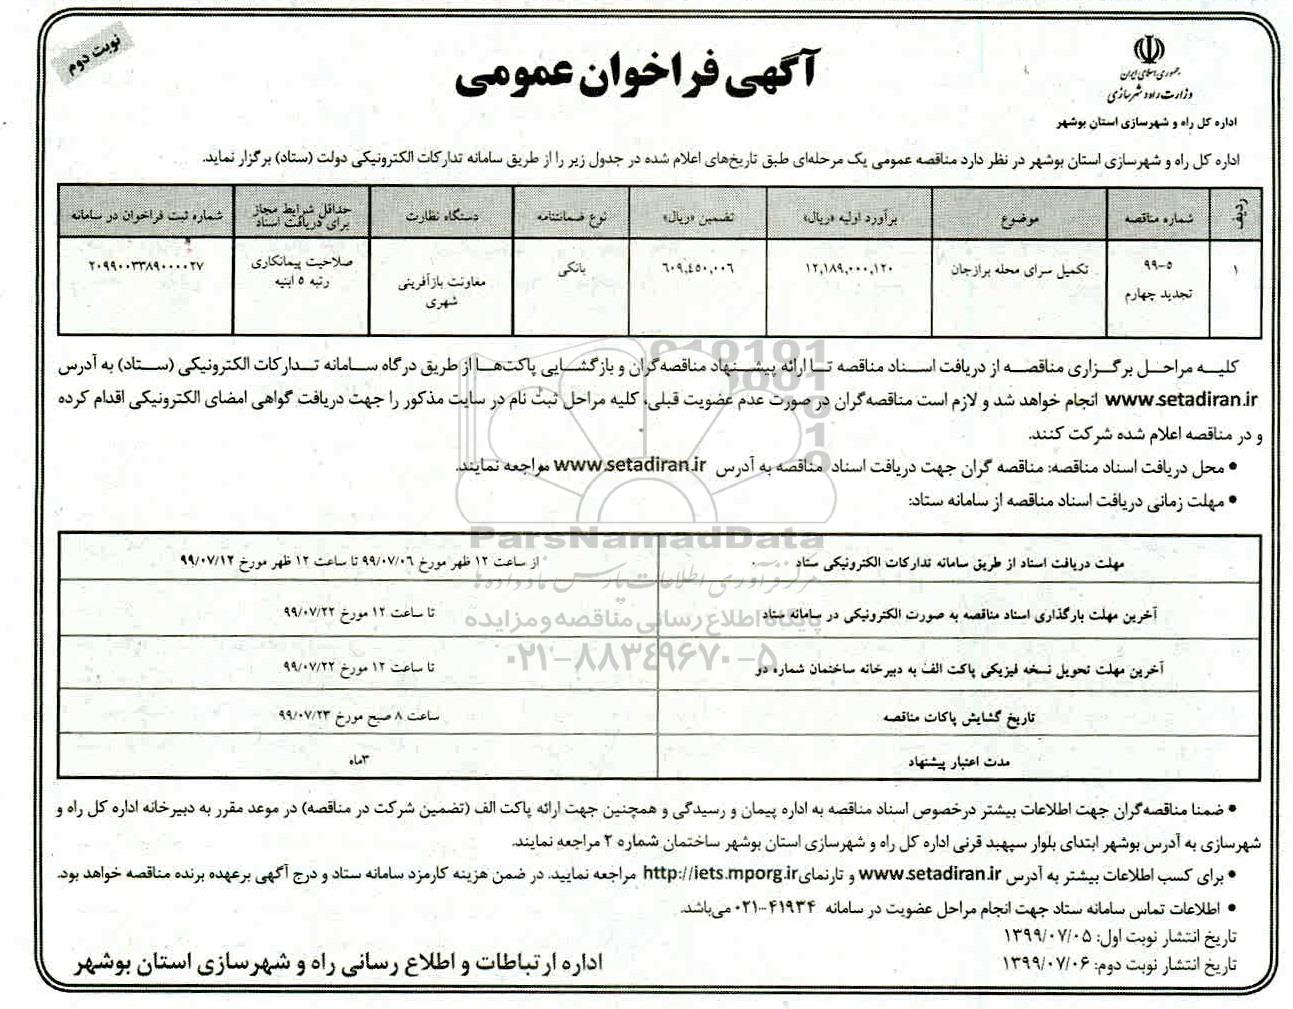 نوبت دوم
جمهوری اسلامی ایران
وزارت راه و شهرسازی
اداره کل راه و شهرسازی استان بوشهر
آگهی فراخوان عمومی
اداره کل راه و شهرسازی استان بوشهر در نظر دارد مناقصه عمومی یک مرحله‌ای طبق تاریخ‌های اعلام شده در جدول زیر را از طریق سامانه تدارکات الکترونیکی دولت (ستاد) برگزار نماید.
ردیف شماره مناقصه موضوع برآورد اولیه «ریال» تضمین «ریال» نوع ضمانتنامه دستگاه نظارت حداقل شرایط مجاز برای دریافت اسناد شماره ثبت فراخوان در سامانه
۱ ۹۹-۵ تجدید چهارم تکمیل سرای محله برازجان ۱۲,۱۸۹,۰۰۰,۱۲۰ ۶۰۹,۴۵۰,۰۰۶ بانکی معاونت بازآفرینی شهری صلاحیت پیمانکاری رتبه ۵ ابنیه ۲۰۹۹۰۰۳۳۸۹۰۰۰۰۲۷
کلیه مراحل برگزاری مناقصه از دریافت اسناد مناقصه تا ارائه پیشنهاد مناقصه‌گران و بازگشایی پاکت‌ها از طریق درگاه سامانه تدارکات الکترونیکی (ستاد) به آدرس
www.setadiran.ir انجام خواهد شد و لازم است مناقصه‌گران در صورت عدم عضویت قبلی، کلیه مراحل ثبت نام در سایت مذکور را جهت دریافت گواهی امضای الکترونیکی اقدام کرده
و در مناقصه اعلام شده شرکت کنند.
• محل دریافت اسناد مناقصه: مناقصه گران جهت دریافت اسناد مناقصه به آدرس www.setadiran.ir مراجعه نمایند.
• مهلت زمانی دریافت اسناد مناقصه از سامانه ستاد:
ParsNamadData
مرکز فرآوری اطلاعات پارس نماد داده‌ها
پایگاه اطلاع رسانی مناقصه و مزایده
۰۲۱-۸۸۳۴۹۶۷۰-۵
مهلت دریافت اسناد از طریق سامانه تدارکات الکترونیکی ستاد از ساعت ۱۲ ظهر مورخ ۹۹/۰۷/۰۶ تا ساعت ۱۲ ظهر مورخ ۹۹/۰۷/۱۲
آخرین مهلت بارگذاری اسناد مناقصه به صورت الکترونیکی در سامانه ستاد تا ساعت ۱۲ مورخ ۹۹/۰۷/۲۲
آخرین مهلت تحویل نسخه فیزیکی پاکت الف به دبیرخانه ساختمان شماره دو تا ساعت ۱۲ مورخ ۹۹/۰۷/۲۲
تاریخ گشایش پاکات مناقصه ساعت ۸ صبح مورخ ۹۹/۰۷/۲۳
مدت اعتبار پیشنهاد ۳ماه
• ضمنا مناقصه‌گران جهت اطلاعات بیشتر درخصوص اسناد مناقصه به اداره پیمان و رسیدگی و همچنین جهت ارائه پاکت الف (تضمین شرکت در مناقصه) در موعد مقرر به دبیرخانه اداره کل راه و
شهرسازی به آدرس بوشهر ابتدای بلوار سپهبد قرنی اداره کل راه و شهرسازی استان بوشهر ساختمان شماره ۲ مراجعه نمایند.
• برای کسب اطلاعات بیشتر به آدرس www.setadiran.ir و تارنمای http://iets.mporg.ir مراجعه نمایید. در ضمن هزینه کارمزد سامانه ستاد و درج آگهی برعهده برنده مناقصه خواهد بود.
• اطلاعات تماس سامانه ستاد جهت انجام مراحل عضویت در سامانه ۴۱۹۳۴-۰۲۱ می‌باشد.
تاریخ انتشار نوبت اول: ۱۳۹۹/۰۷/۰۵
تاریخ انتشار نوبت دوم: ۱۳۹۹/۰۷/۰۶
اداره ارتباطات و اطلاع رسانی راه و شهرسازی استان بوشهر